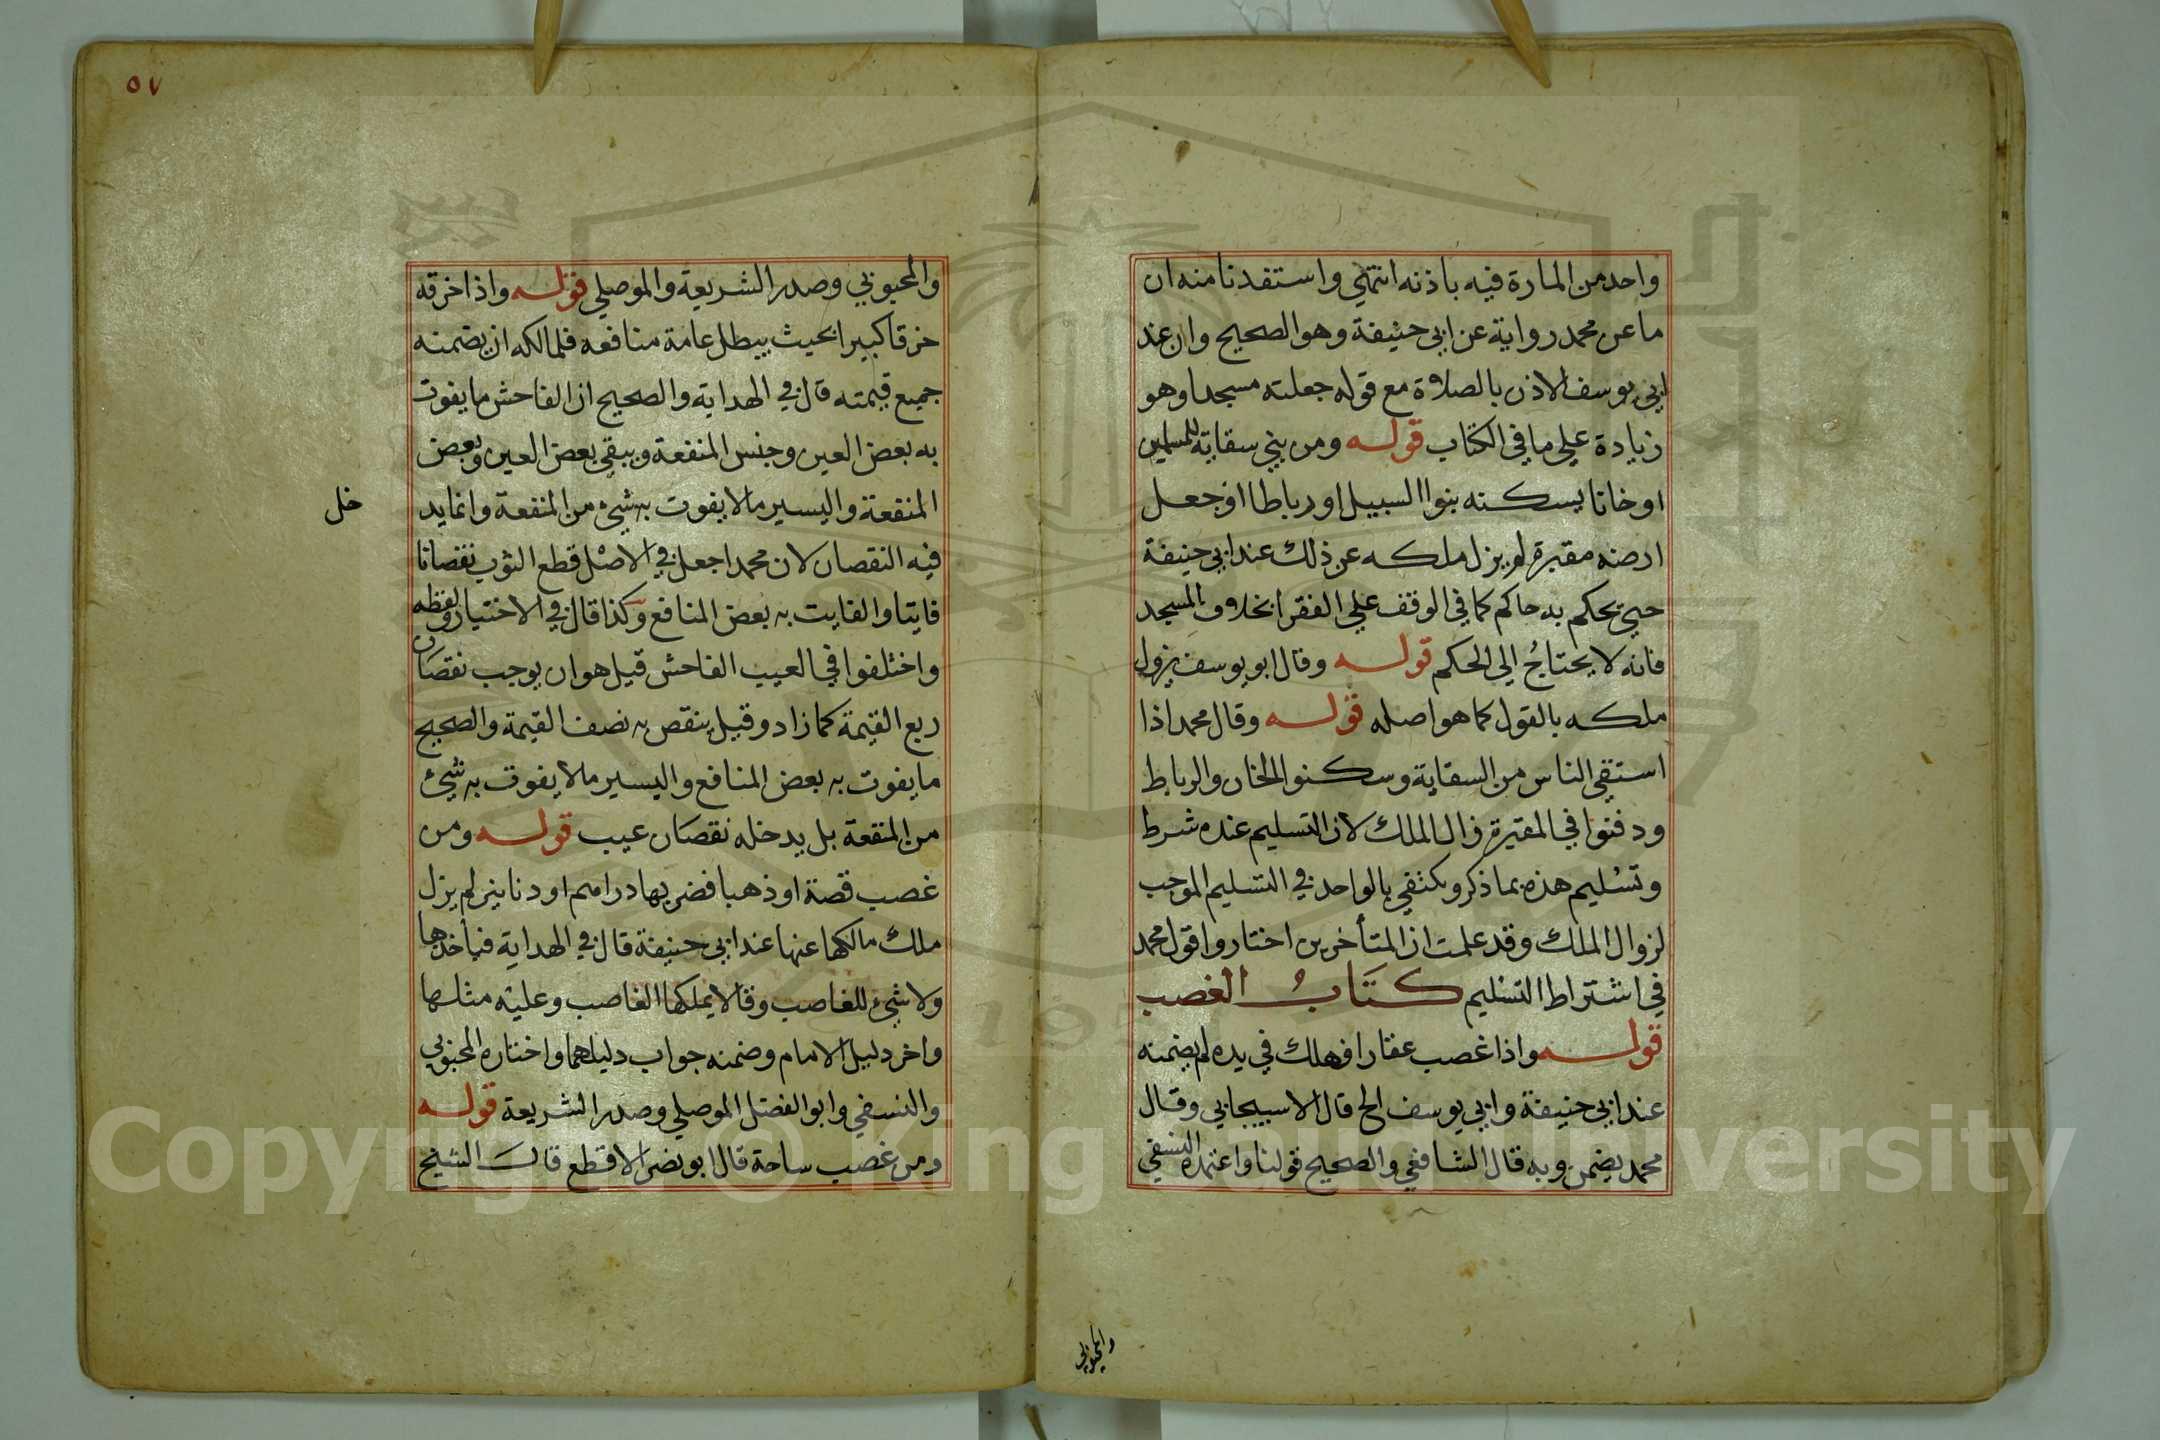 واحد من المارة فيه باذنه انتهي واستفدنا منه ان
ما عن محمد رواية عن ابي حنيفة وهو الصحيح وان عند
ابي يوسف الاذن بالصلاة مع قوله جعلته مسجدا وهو
زيادة علي ما في الكتاب قوله ومن بني سقاية للمسلمين
او خانا يسكنه بنوا السبيل او رباطا او جعل
ارضه مقبرة لم يزل ملكه عن ذلك عند ابي حنيفة
حتي يحكم به حاكم كما في الوقف علي الفقرا بخلاف المسجد
فانه لا يحتاج الي الحكم قوله وقال ابو يوسف يزول
ملكه بالقول كما هو اصله قوله وقال محمد اذا
استقي الناس من السقاية وسكنوا الخان والرباط
ودفنوا في المقبرة زال الملك لان التسليم عنده شرط
وتسليم هذه بما ذكر ويكتفي بالواحد في التسليم الموجب
لزوال الملك وقد علمت ان المتأخرين اختاروا قول محمد
في اشتراط التسليم كتاب الغصب
قوله واذا غصب عقارا فهلك في يده لم يضمنه
عند ابي حنيفة وابي يوسف الخ قال الاسبيجابي وقال
محمد يضمن وبه قال الشافعي والصحيح قولنا واعتمده النسفي
والمحبوبي
٥٧
والمحبوبي وصدر الشريعة والموصلي قوله واذا خرقه
خرقا كبيرا بحيث يبطل عامة منافعه فلمالكه ان يضمنه
جميع قيمته قال في الهداية والصحيح ان الفاحش ما يفوت
به بعض العين وجنس المنفعة ويبقي بعض العين وبعض
المنفعة واليسير ما لا يفوت به شيء من المنفعة وانما يد
خل
فيه النقصان لان محمدا جعل في الاصل قطع الثوب نقصانا
فايتا والفايت به بعض المنافع وكذا قال في الاختيار ولفظه
واختلفوا في العيب الفاحش قيل هو ان يوجب نقصان
ربع القيمة كما زاد وقيل ينقص به نصف القيمة والصحيح
ما يفوت به بعض المنافع واليسير ما لا يفوت به شيئ
من المنفعة بل يدخله نقصان عيب قوله ومن
غصب فضة او ذهبا فضربها دراهم او دنانير لم يزل
ملك مالكها عنها عند ابي حنيفة قال في الهداية فيأخذها
ولا شيء للغاصب وقالا يملكها الغاصب وعليه مثلها
واخر دليل الامام وضمنه جواب دليلهما واختاره المحبوبي
والنسفي وابو الفضل الموصلي وصدر الشريعة قوله
ومن غصب ساحة قال ابو نصر الاقطع قال الشيخ
Copyright © King Saud University